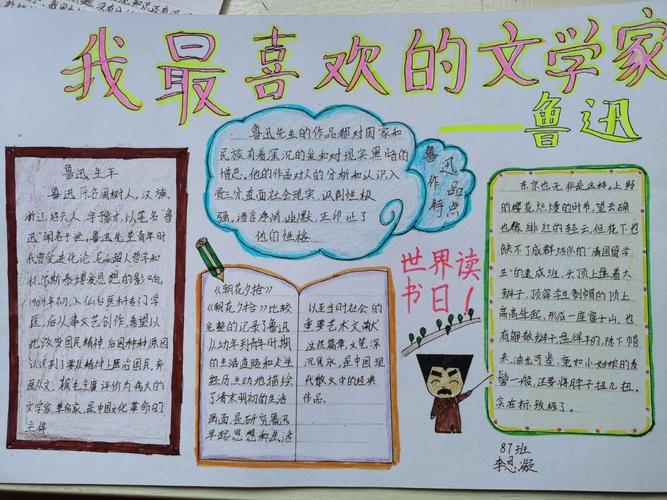 我最喜欢的文学家
——鲁迅
鲁迅生平
鲁迅原名周树人，汉族，
浙江绍兴人，字豫才，以笔名"鲁
迅"闻名于世。鲁迅先生青年时
代曾受进化论、尼采超人哲学和
托尔斯泰博爱思想的影响。
1904年初，入仙台医科专门学
医，后从事文艺创作，希望以
此改变国民精神，后因种种原因
弃医从文。被毛主席评价为伟大的
文学家、革命家，是中国文化革命的
主将
鲁迅先生的作品都对国家和
民族有着深沉的爱和对现实黑暗的
憎恶。他的作品对人的分析和认识入
骨三分直面社会现实，讽刺性极
强，语言凄冽，幽默，正印证了
他们的性格
鲁迅
作品
特点
世界读
书日！
《朝花夕拾》
《朝花夕拾》比较
完整的记录了鲁迅
从幼年到青年时期
的生活道路和人生
经历，生动地描绘
了清末明初的生活
画面，是研究鲁迅
早起思想和生活
以至当时社会的
重要艺术文献。
这些篇章，文笔深
沉隽永，是中国现
代散文中的经典
作品。
东京也无非是这样。上野
的樱花烂熳的时节，望去确
也像绯红的轻云，但花下也
缺不了成群结队的"清国留学
生"的速成班，头顶上盘着大
辫子，顶得学生制帽的顶上
高高耸起，形成一座富士山。也
有解散辫子，盘得平的，除下帽
来，油光可鉴，宛如小姑娘的发
髻一般，还要将脖子扭几扭。
实在标致极了。
87班
李思凝